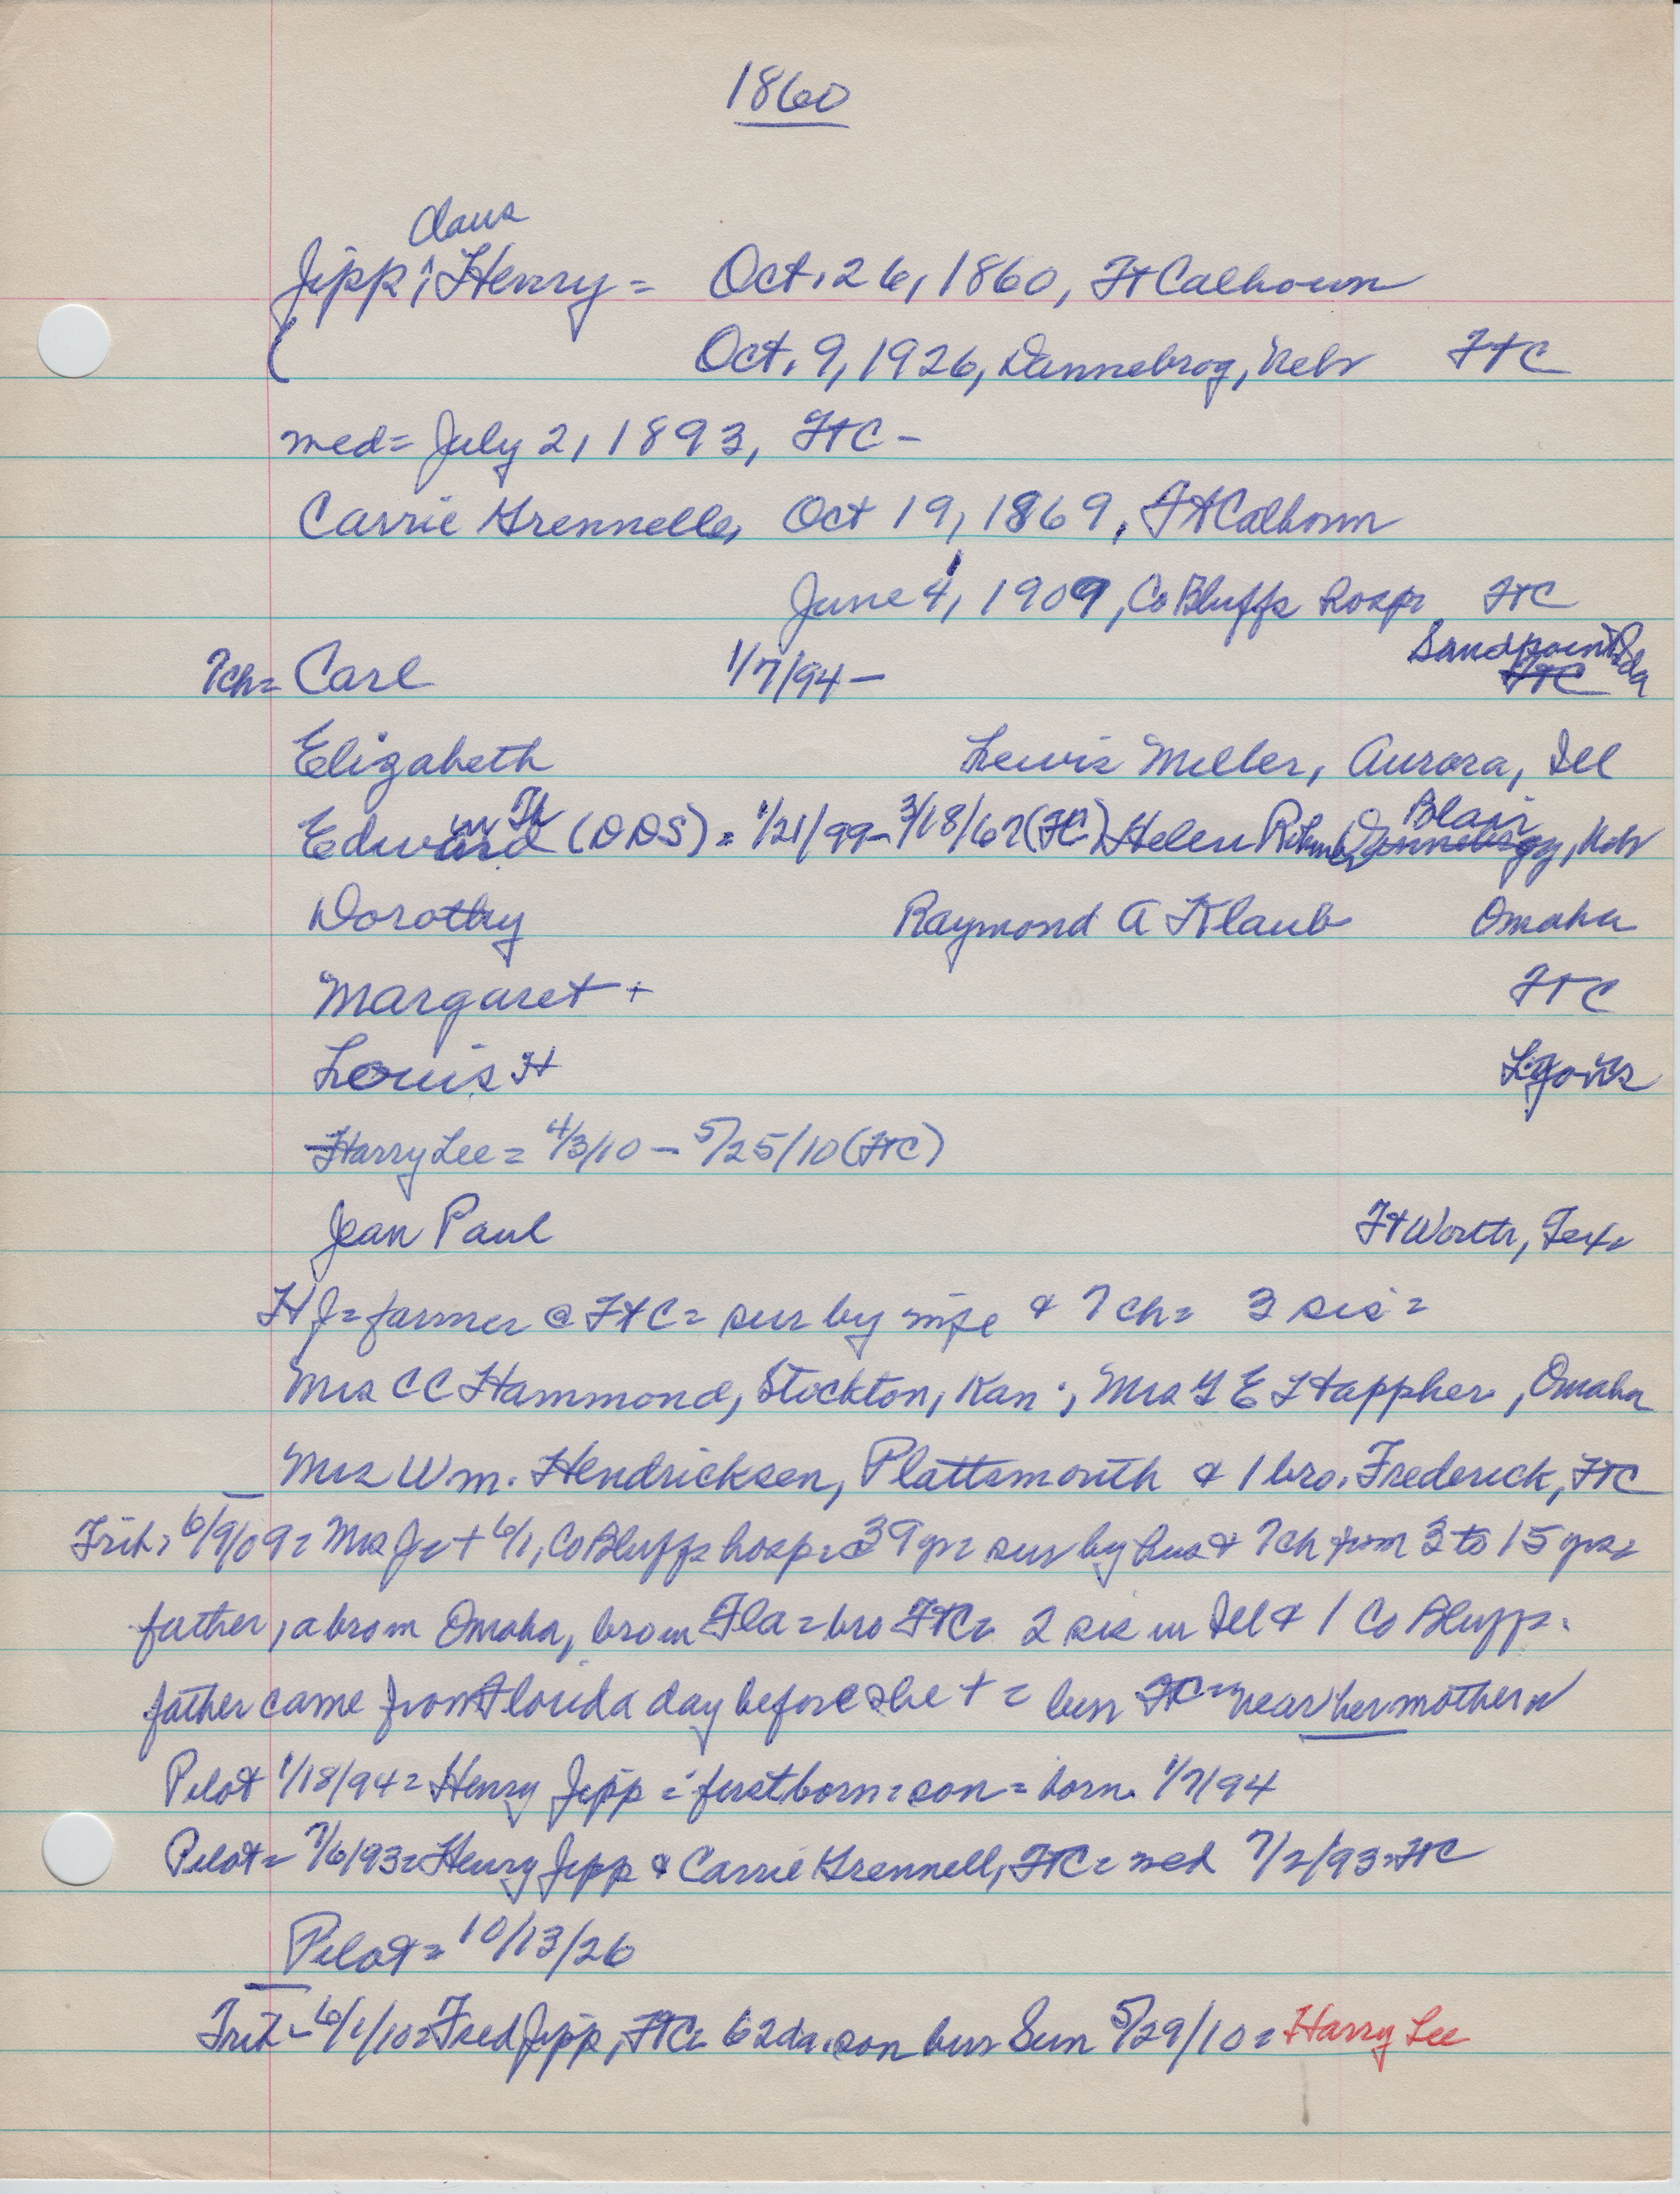 1860
Claus
Jipp, ^ Henry = Oct. 26, 1860, Ft Calhoun
Oct. 9, 1926, Dannebrog, Nebr FtC
med = July 2, 1893, FtC -
Carrie Grennelle, Oct 19, 1869, Ft Calhoun
June 1, 1909, Co Bluffs hosp FtC
7ch = Carl 1/7/94 - Sandpoint Ida
FtC
Elizabeth Lewis Miller, Aurora, Ill
Edwin (DDS) = 1/21/99 - 3/18/67 (FtC) Helen Blair, Nebr
Dorothy Raymond A Klaub Omaha
Margaret + FtC
Louis H Lyons
Harry Lee = 4/3/10 - 5/25/10 (FtC)
Jean Paul Ft Worth, Tex.
HJ = farmer @ FtC = sur by wife & 7 ch = 3 sis =
Mrs CC Hammond, Stockton, Kan ; Mrs G E Happher, Omaha
Mrs Wm. Hendricksen, Plattsmouth & 1 bro. Frederick, FtC
Trib = 6/9/09 = Mrs J = + 6/1, Co Bluffs hosp = 39 yr = sur by hus & 7ch from 3 to 15 yrs =
father, a bro in Omaha, bro in Fla = bro FtC = 2 sis in Ill & 1 Co Bluffs.
father came from Florida day before she + = bur FtC = "near her mother"
Pilot 1/18/94 = Henry Jipp = firstborn = son = born 1/7/94
Pilot = 7/6/93 = Henry Jipp & Carrie Grennell, FtC = med 7/2/93 = FtC
Pilot = 10/13/26
Trib - 6/1/10 = Fred Jipp, FtC = 62da. son bur Sun 5/29/10 = Harry Lee